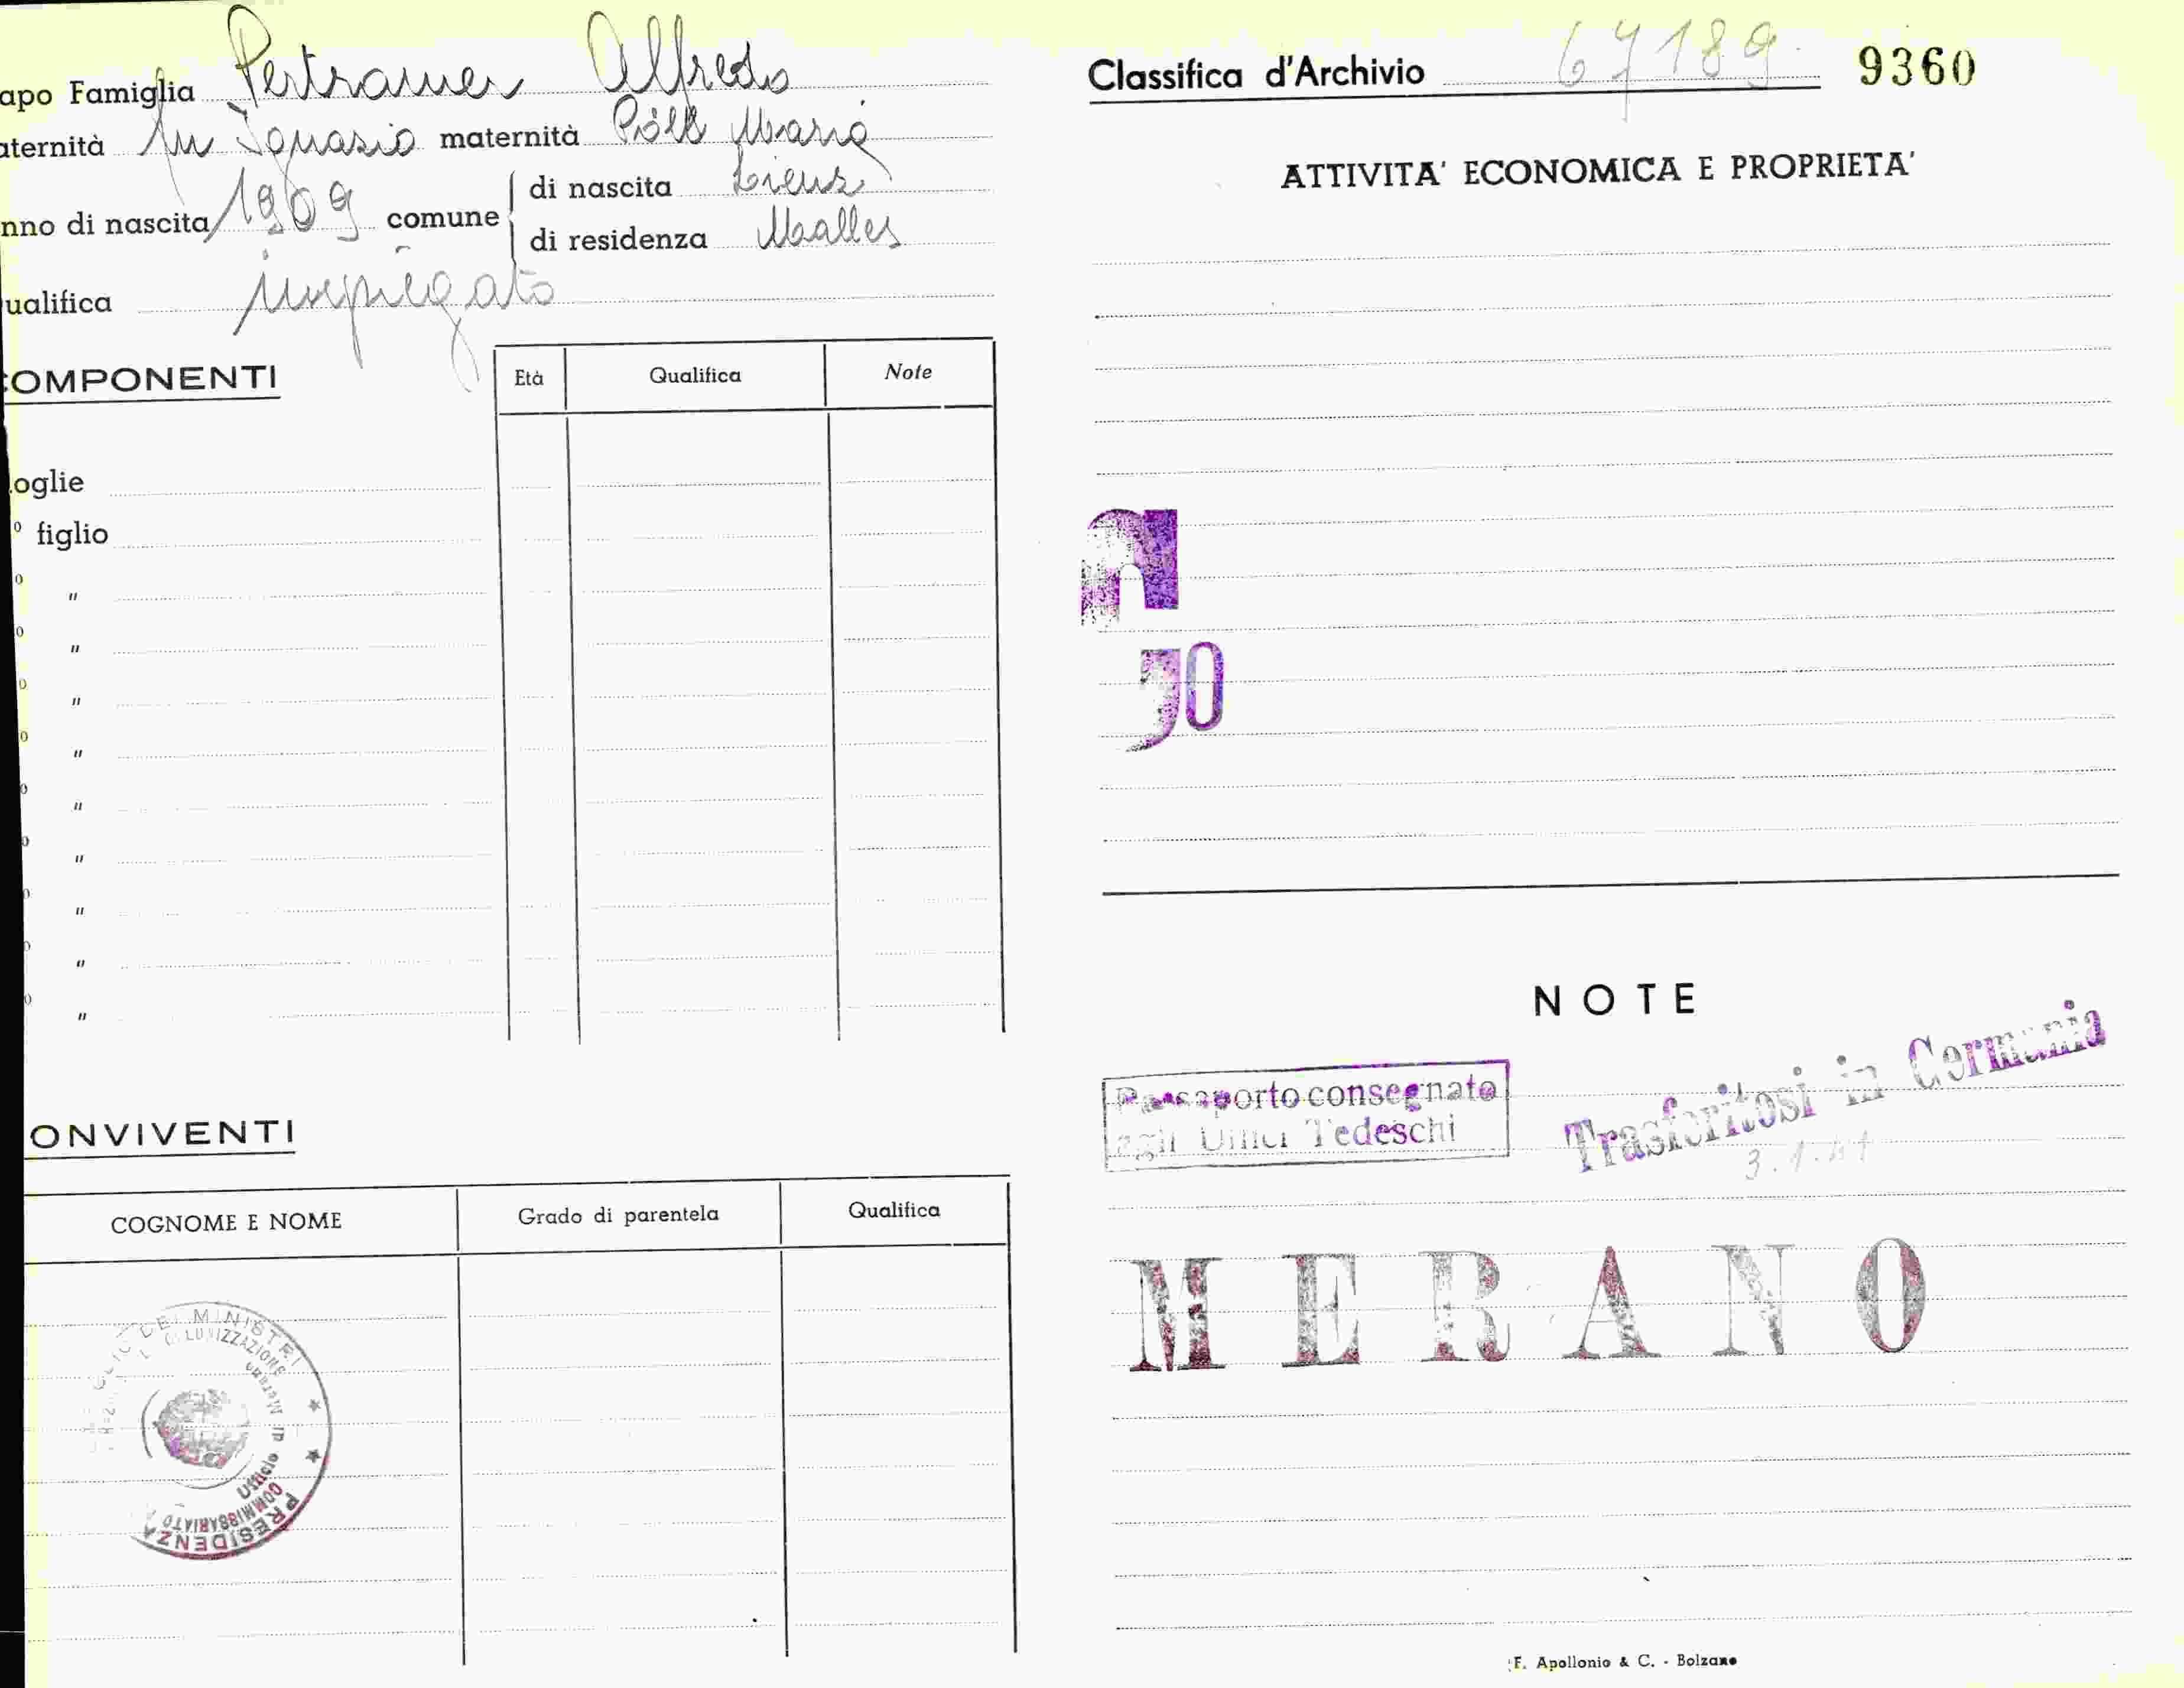 apo Famiglia Pertramer Alfredo
aternità fu Ignazio maternità Pöll Maria
nno di nascita 1909 comune di nascita Lienz
di residenza Malles
ualifica impiegato
COMPONENTI
Età Qualifica Note
oglie
° figlio
"
"
"
"
"
"
"
"
"
ONVIVENTI
COGNOME E NOME Grado di parentela Qualifica
DEI MINISTRI
PRESIDENZA
COMMISSARIATO
Ufficio di Merano
Classifica d'Archivio 67189 9360
ATTIVITA' ECONOMICA E PROPRIETA'
NOTE
Passaporto consegnato
agli Uffici Tedeschi
Trasferitosi in Germania
3.1.41
MERANO
F. Apollonio & C. - Bolzano